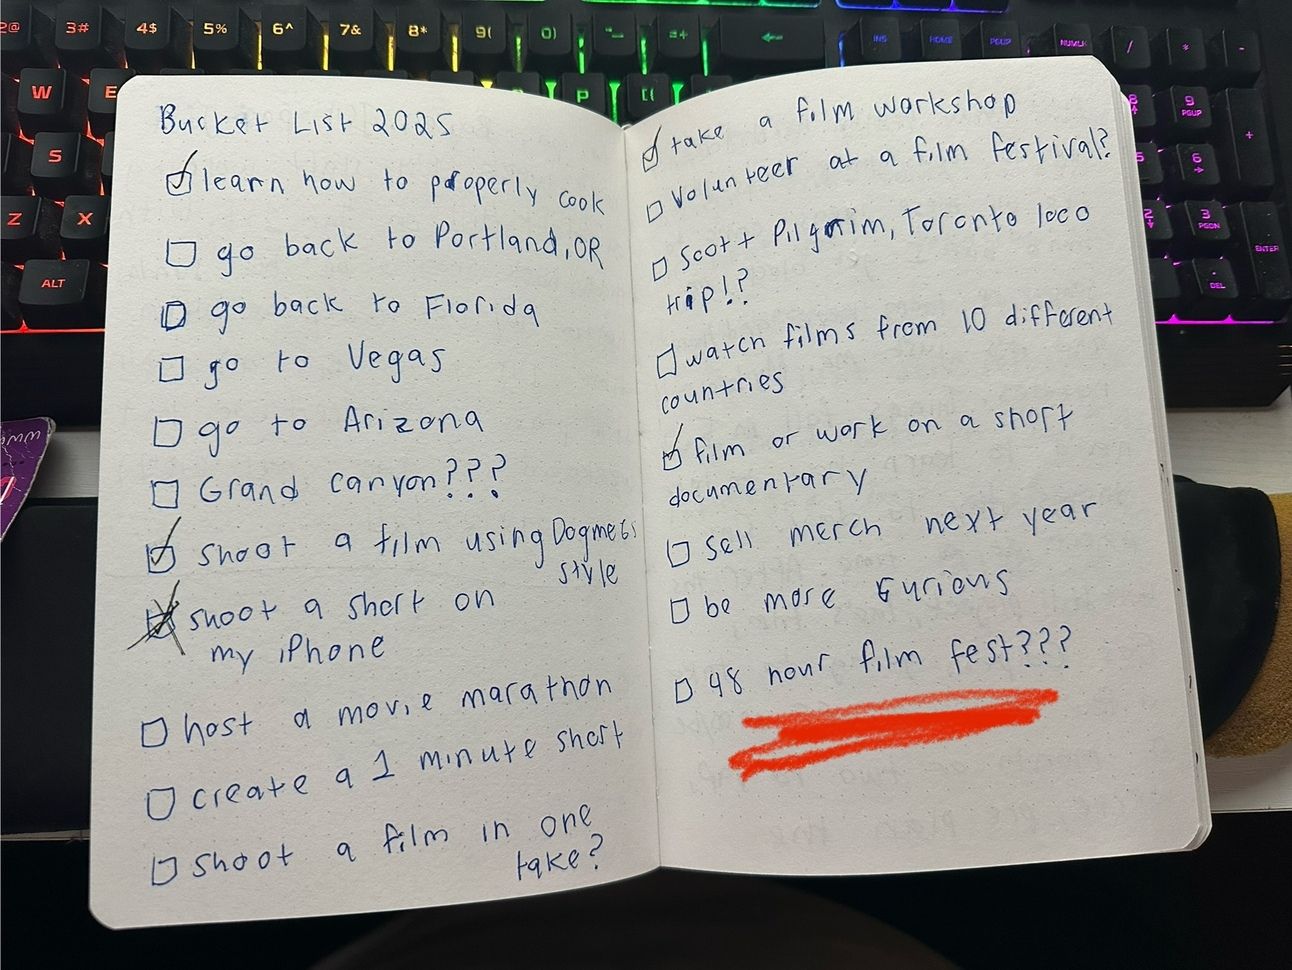 Bucket List 2025
learn how to properly cook
go back to Portland, OR
go back to Florida
go to Vegas
go to Arizona
Grand canyon???
shoot a film using Dogme95
style
shoot a short on
my iPhone
host a movie marathon
create a 1 minute short
shoot a film in one
take?
take a film workshop
Volunteer at a film festival?
Scott Pilgrim, Toronto loco
trip!?
watch films from 10 different
countries
film or work on a short
documentary
sell merch next year
be more curious
48 hour film fest???
2@ 3# 4$ 5% 6^ 7& 8* 9( 0) -_ =+ INS HOME PGUP NUMLK / * -
W E P [{ 9 PGUP +
S 5 6
Z X 2 3 PGDN ENTER
ALT . DEL
www